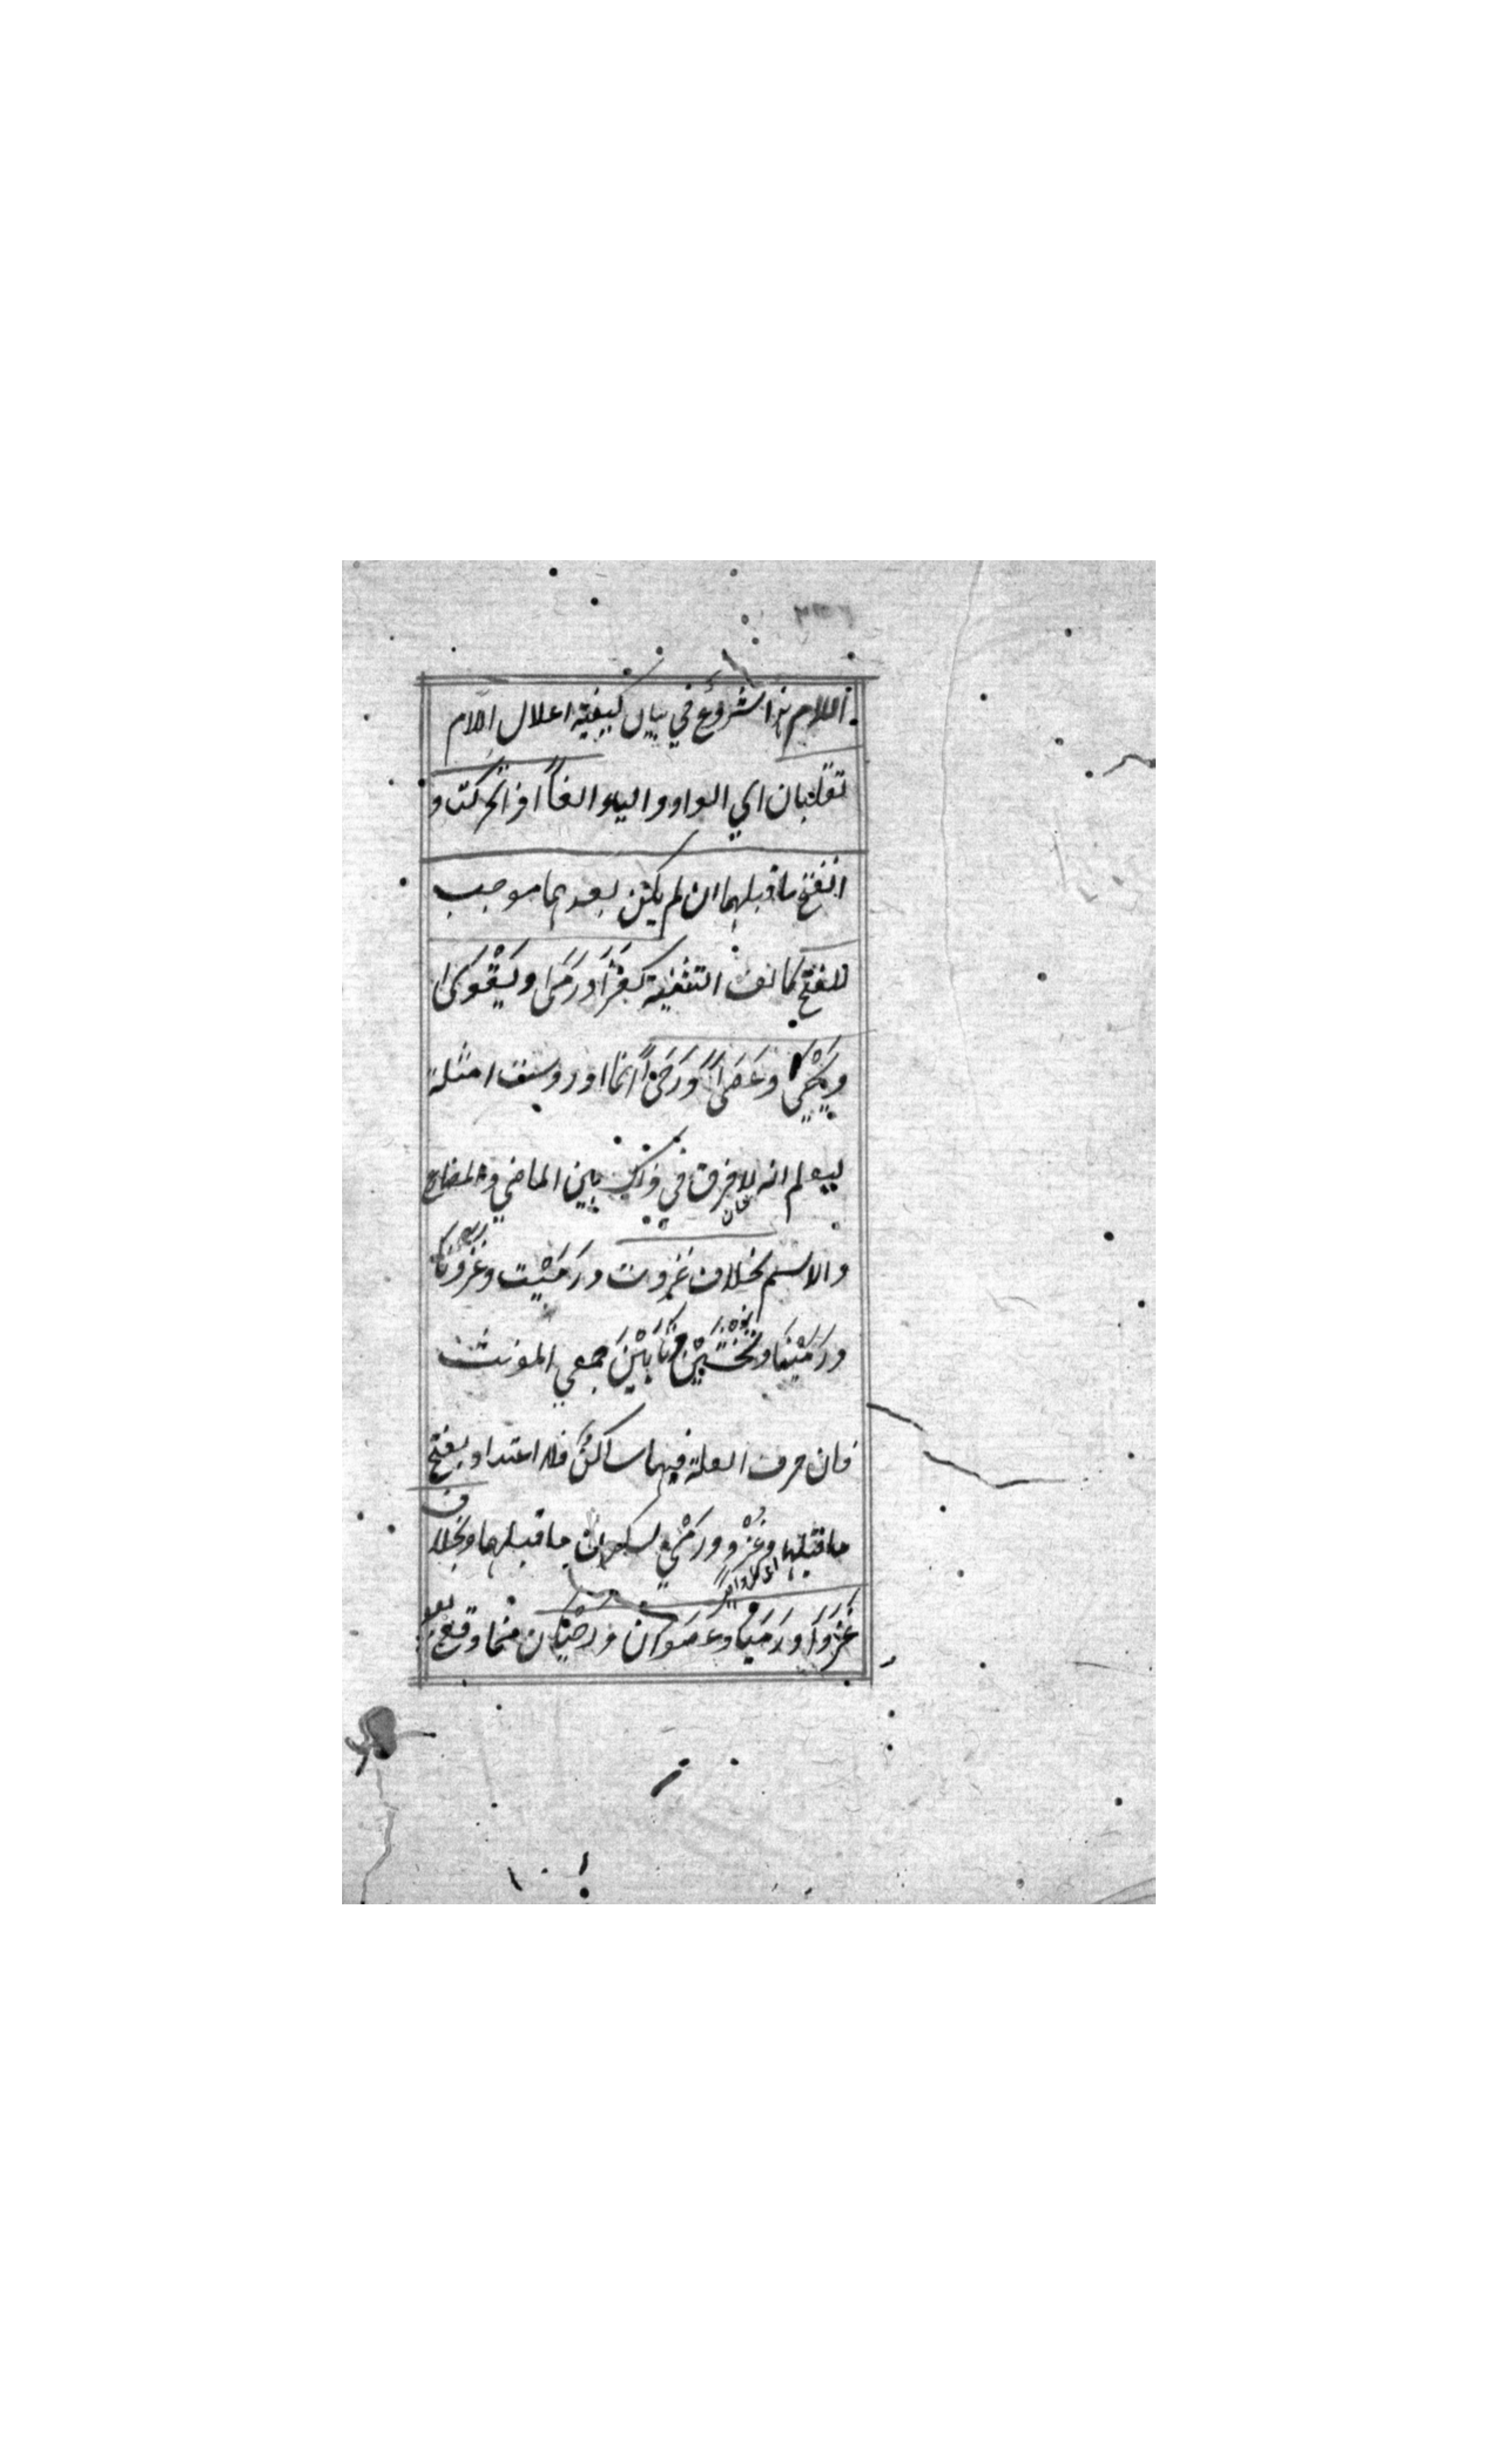 اللام هذا شروع في بيان كيفية اعلال اللام
تقلبان اي الواو والياء الفاً اذا تحركت و
انفتح ما قبلهما ان لم يكن بعدهما موجب
للفتح كالف التثنية كغَزَا ورَمَى ويَقْوَى
ويَحْيَى وعَصَىً ورَحَىً انما اورد ستة امثلة
ليعلم انه لا فرق في ذلك بين الماضي والمضارع
والاسم بخلاف غزوت ورَمَيْت وغَزَوْنَا
ورَمَيْنَا ويَخْشَيْنَ ويَأبَيْنَ جمعي المؤنث
فان حرف العلة فيهما ساكن فلا اعتداد بفتح
ما قبلها وغَزْوٍ ورَمْيٍ لسكون ما قبلها وبخلاف
غَزَوَا ورَمَيَا وعَصَوَان ورَحَيَان مما وقع بعد